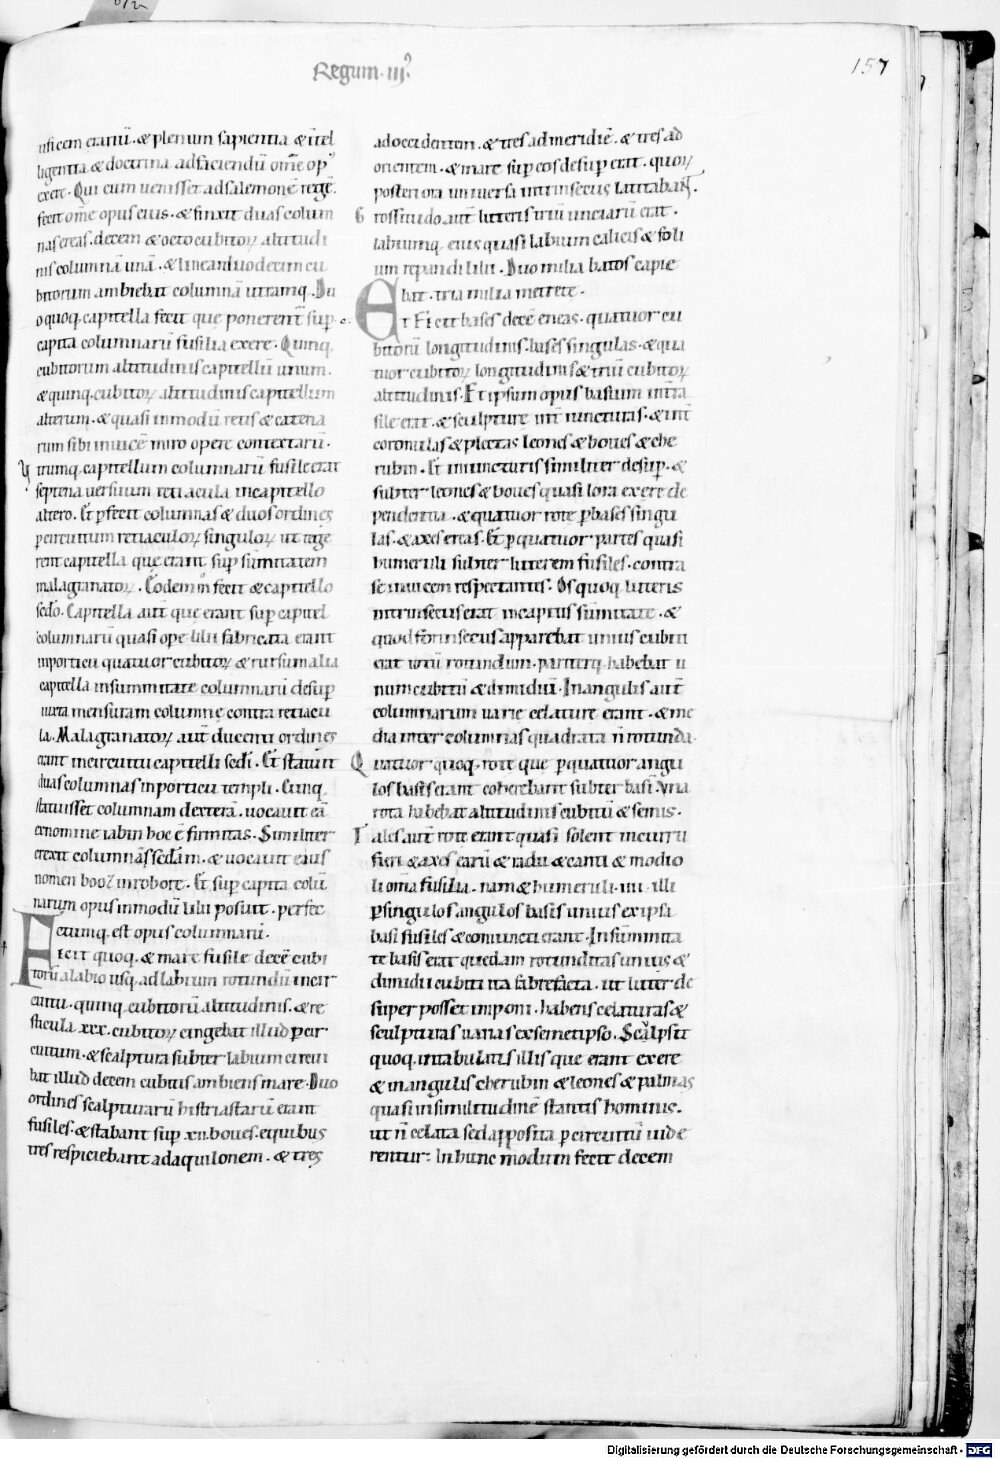 Regum · iij⁹
157
tificem erariū · & plenum sapientia & intel
ligentia & doctrina ad faciendū om̄e op⁹
exere · Qui cum uenisset ad salemonē regē ·
fecit om̄e opus eius · & finxit duas colum
nas ereas · decem & octo cubitoꝝ altitudi
nis columnā unā · & linea duodecim cu
bitorum ambiebat columnā utramq · Du
o quoq · capitella fecit que ponerent̄ sup
capita columnarū fusilia ex ere · Quinq ·
cubitorum altitudinis capitellū unum ·
& quinq · cubitoꝝ altitudinis capitellum
alterum · & quasi in modū retis & catena
rum sibi inuicē miro opere contextarū ·
Vtrumq · capitellum columnarū fusile erat
septena uersuum retiacula in capitello
altero · Et ꝑfecit columnas & duos ordines
ꝑ circuitum retiaculoꝝ singuloꝝ ut tege
rent capitella que erant sup sūmitatem
malagranatoꝝ · Eodem mᵒ fecit & capitello
sc̄do · Capitella aut̄ que erant sup capitel
columnarū quasi ope lilii fabricata erant
in porticu quatuor cubitoꝝ & rursum alia
capitella in summitate columnarū desup
iuxta mensuram columne contra retiacu
la · Malagranatoꝝ aut̄ ducenti ordines
erant in circuitu capitelli sc̄di · Et statuit
duas columnas in porticu templi · Cunq ·
statuisset columnam dexterā · uocauit eā
ex nomine iabin hoc ē firmitas · Similiter
erexit columnā sc̄dam · & uocauit eius
nomen booz in robore · Et sup capita colū
narum opus in modū lilii posuit · perfec
tumq · est opus columnarū ·
Fecit quoq · & mare fusile decē cubi
torū a labio usq · ad labium rotundū in cir
cuitu · quinq · cubitorū altitudinis · & re
sticula xxx · cubitoꝝ cingebat illud ꝑ cir
cuitum · & scalptura subter labium circui
bat illud decem cubitis ambiens mare · Duo
ordines scalpturarū histriatarū erant
fusiles · & stabant sup · xii · boues · e quibus
tres respiciebant ad aquilonem · & tres
ad occidentem · & tres ad meridiē · & tres ad
orientem · & mare sup eos desup erat · quoꝝ
posteriora uniuersa intrinsecus latitabant ·
Grossitudo aut̄ luteris triū unciarū erat ·
labiumq · eius quasi labium calicis & foli
um repandi lilii · Duo milia batos capie
bat · tria milia metrete ·
Et fecit bases decē eneas · quatuor cu
bitorū longitudinis · bases singulas · & qua
tuor cubitoꝝ longitudinis & triū cubitoꝝ
altitudinis · Et ipsum opus basium int̄ra
sile erat · & sculpture int̄ iuncturas · & int̄
coronulas & plectas leones & boues & che
rubin · Et in iuncturis similiter desup · &
subter leones & boues quasi lora ex ere de
pendentia · & quatuor rote ꝑ bases singu
las · & axes ereas · Et ꝑ quatuor partes quasi
humeruli subter luterem fusiles · contra
se inuicem respectantes · Os quoq luteris
intrinsecus erat in capitis sūmitate · &
quod forinsecus apparebat unius cubiti
erat totū rotundum · pariterq · habebat u
num cubitū & dimidiū · In angulis aut̄
columnarum uarie celature erant · & me
dia inter columnas quadrata n̄ rotunda ·
Quatuor quoq · rote que ꝑ quatuor angu
los basis erant coherebant subter basī · Vna
rota habebat altitudinis cubitū & semis ·
Tales aut̄ rote erant quasi solent in curru
fieri & axes earū & radii & canti & modio
li om̄a fusilia · nam & humeruli · iiii · illi
ꝑ singulos angulos basis unius ex ipsa
basi fusiles & coniuncti erant · In sūmita
te basis erat quedam rotunditas unius &
dimidii cubiti ita fabrefacta · ut luter de
super posset imponi · habens celaturas &
sculpturas uarias ex semetipso · Scalpsit
quoq · in tabulatis illis que erant ex ere
& in angulis cherubin & leones & palmas
quasi in similitudinē stantis hominis ·
ut n̄ celata sed apposita ꝑ circuitū uide
rentur : In hunc modum fecit decem
Digitalisierung gefördert durch die Deutsche Forschungsgemeinschaft - DFG